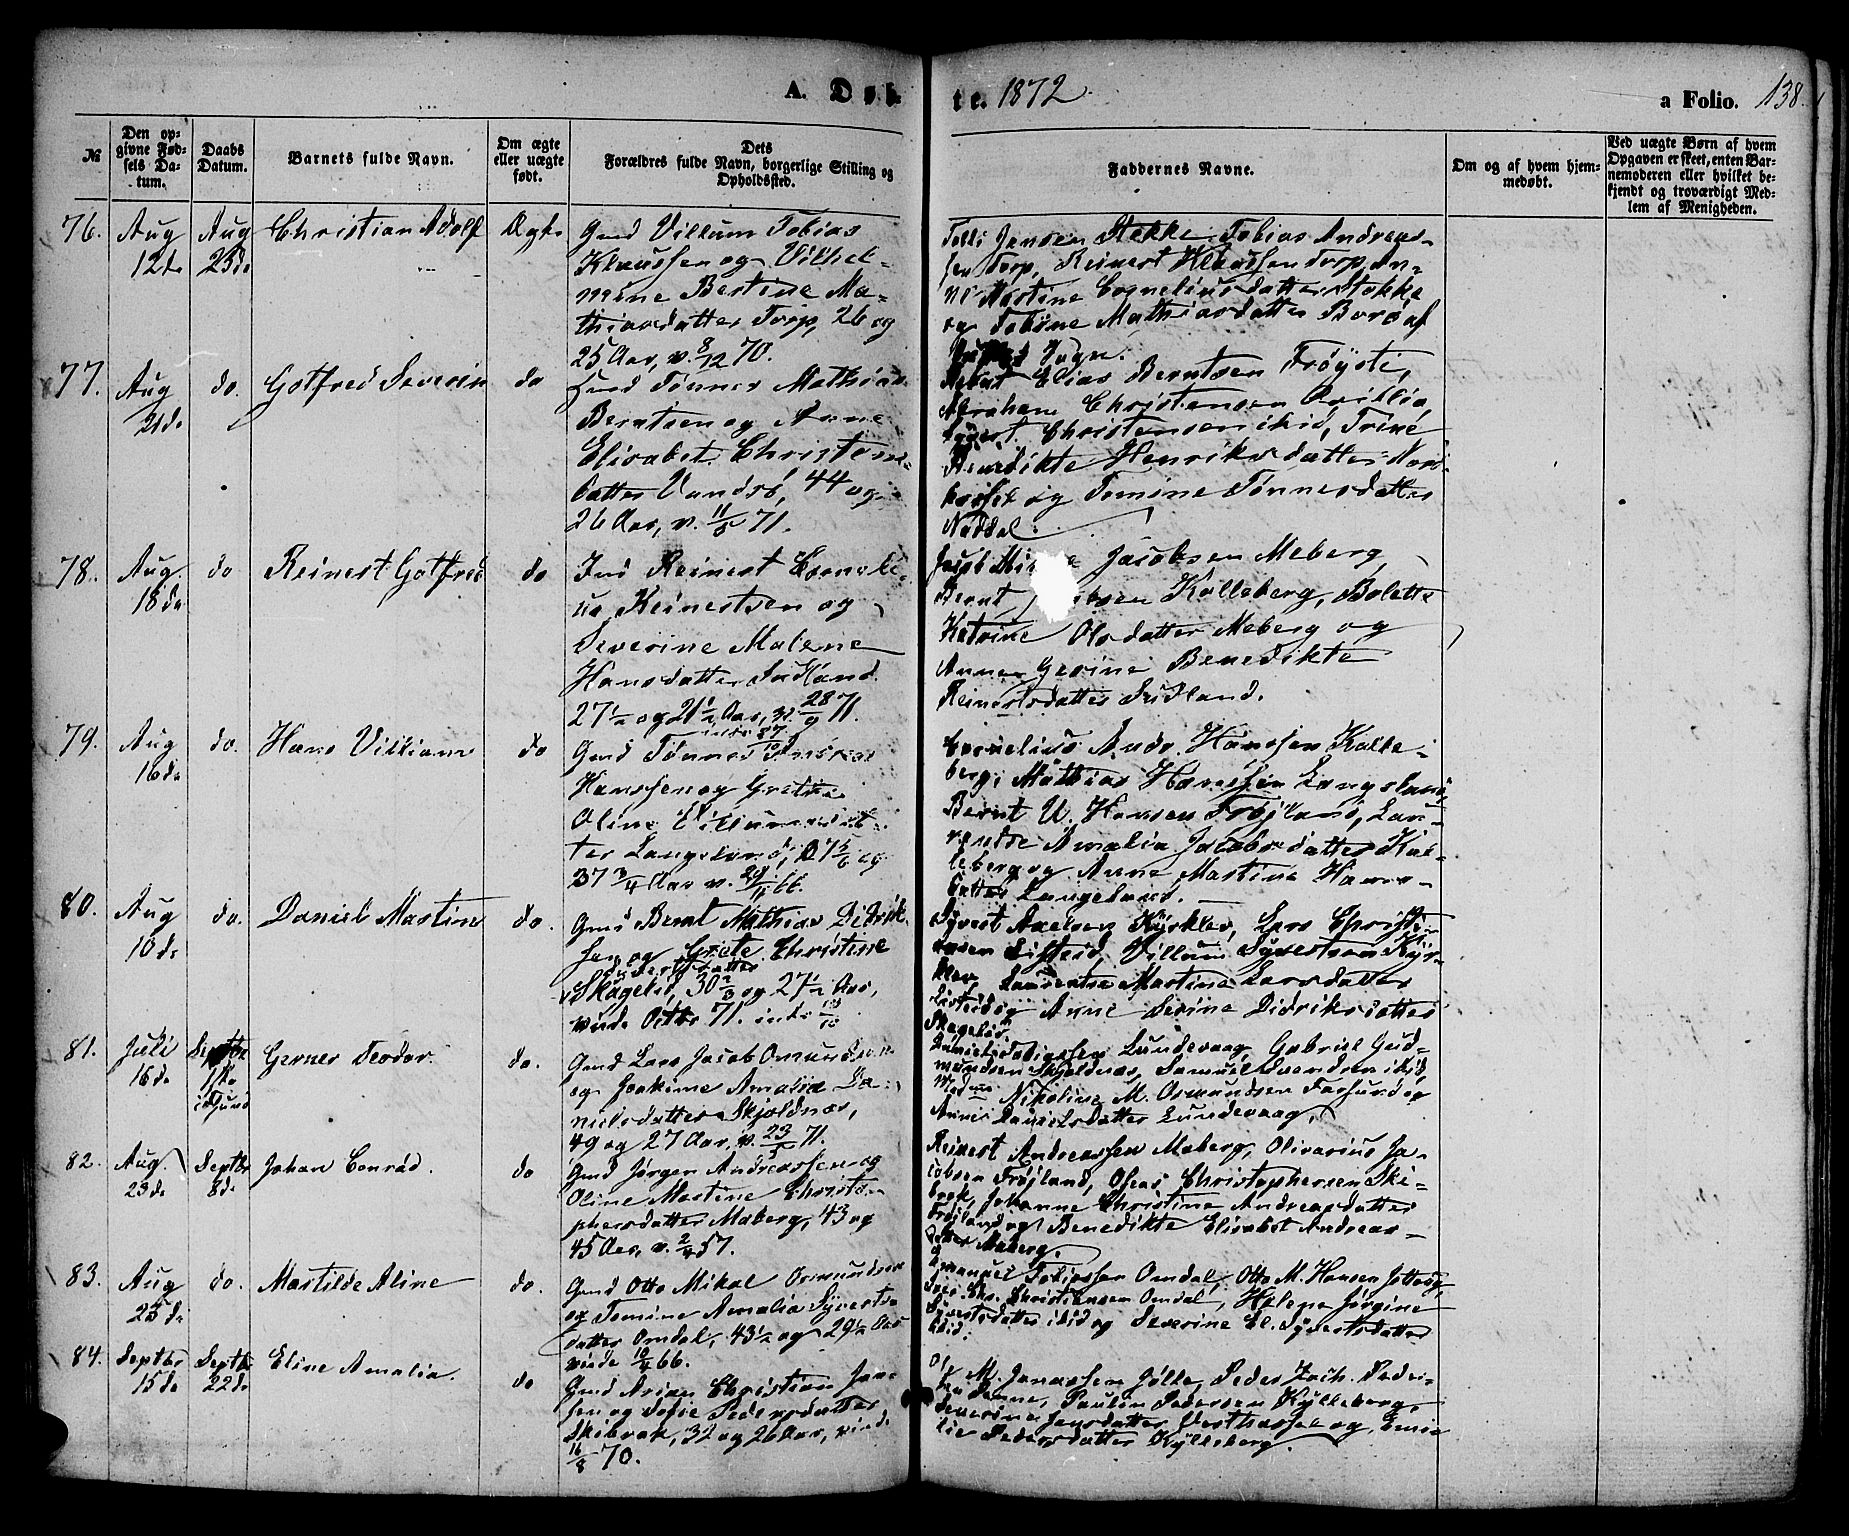 A. Døb
te. 1872
a Folio. 138.
№
Den op-
givne Fød-
sels Da-
tum.
Daabs
Datum.
Barnets fulde Navn.
Om ægte
eller uægte
født.
Dets
Forældres fulde Navn, borgerlige Stilling og
Opholdssted.
Faddernes Navne.
Om og af hvem hjem-
medøbt.
Ved uægte Børn af hvem
Opgaven er skeet, enten Bar-
nemoderen eller hvilket be-
kjendt og troværdigt Med-
lem af Menigheden.
76.
Aug
12te
Aug
25de
Christian Adolf
Ægte
Gmd Villum Tobias
Klaussen og Vilhel-
mine Bertine Ma-
thiasdatter Torp, 26 og
25 Aar, v. 8/12 70.
Jensen Stokke, Tobias Andreas-
sen Torp, Reinert Klaussen Torp, An-
ne Martine Cornelius datter Stokke
og Tobine Mathiasdatter Borø af
Sogn.
77.
Aug
21de
do.
Gotfred Severin
do
Gmd Tønnes Mathias
Berntsen og Anne
Elisabet Christens-
datter Vandsø, 44 og
26 Aar, v. 11/5 71.
Elias Berntsen Frøysti,
Abraham Christensen
Syvert Christensen ibid, Trine
Benedikte Henriks datter
og Tomine Tønnesdatter
Nøddal.
78.
Aug.
18de
do
Reinert Gotfred
do
Ind Reinert Corneli-
us Reinertsen og
Severine Malene
Hansdatter Sudland
27½ og 21½ Aar, v. 28/9 71.
Jacob Jacobsen Meberg,
Bernt Kolleberg, Bolette
Katrine Olsdatter Meberg og
Anne Gesine Benedikte
Reinertsdatter Sudland.
79.
Aug
16de
do.
Hans Villiam
do
Gmd Tønnes Andreas
Hanssen og Gretha
Oline Villumsdat-
ter Langeland, og
37 3/4 Aar v. 66.
Cornelius Andr. Hanssen Kolle-
berg, Mathias Hanssen Langeland,
Bernt U. Hansen Frøjland, Lau-
rentse Amalia Jacobsdatter Kol-
leberg og Anne Martine Hans-
datter Langeland.
80.
Aug
10de
do.
Daniel Martin
do.
Gmd Bernt Mathias Didrik-
sen og Grete Christine
datter
Skagelid, 30 2/3 og 27½ Aar,
viede Octbr 71.
Syvert Axelsen Kyrklev, Lars Christi-
ansen Listeid, Villum Syvertsen Kyr-
klev, Laurentse Martine Larsdatter
Listeid og Anne Serine Didriksdatter
Skagelid.
81.
Juli
16de
Septbr
1ste
Gerner Teodor.
do.
Gmd Lars Jacob Omundsen
og Joakime Amalia Da-
nielsdatter Skjoldnæs,
49 og 27 Aar, v. 23/5 71.
Daniel Tobiassen Lundevaag, Gabriel Gud-
mundsen Skjoldnæs, Samuel Svendsen ibid
Madam Nikoline M. Osmundsen Farsund og
Anne Danielsdatter Lundevaag.
82.
Aug.
23de
Septbr
8de
Johan Conrad.
do
Gmd Jørgen Andreassen og
Oline Martine Christo-
phersdatter Maberg, 43 og
45 Aar, v. 2/4 57.
Reinert Andreassen Maberg, Olivarius Ja-
cobsen Frøjland, Oseas Christophersen Ski-
brak, Johanne Christine Andreasdatter
Frøjland og Benedikte Elisabet Andreas-
datter Maberg.
83.
Aug
25de
do.
Martilde Aline
do.
Gmd Otto Mikal Osmundsen
og Tomine Amalia Syverts-
datter Omdal, 43½ og 29½ Aar
viede 10/4 66.
Emanuel Tobiassen Omdal, Otto M. Hansen
Christiansen Omdal, Helene Jørgine
Syvertsdatter ibid og Severine El. Syvertsdatter
ibid.
84.
Septbr
15de
Septbr
22de
Eline Amalia.
do
Gmd Arian Christian Jan-
sen og Sofie Pedersdatter
Skibrak, 32 og 26 Aar, viede
16/8 70.
M. Janassen Jølle, Peder Zach. Peder-
sen Paulin Pedersen Kylleberg,
Severine Jansdatter Vesthassel og Emi-
lie Pedersdatter Kylleberg.